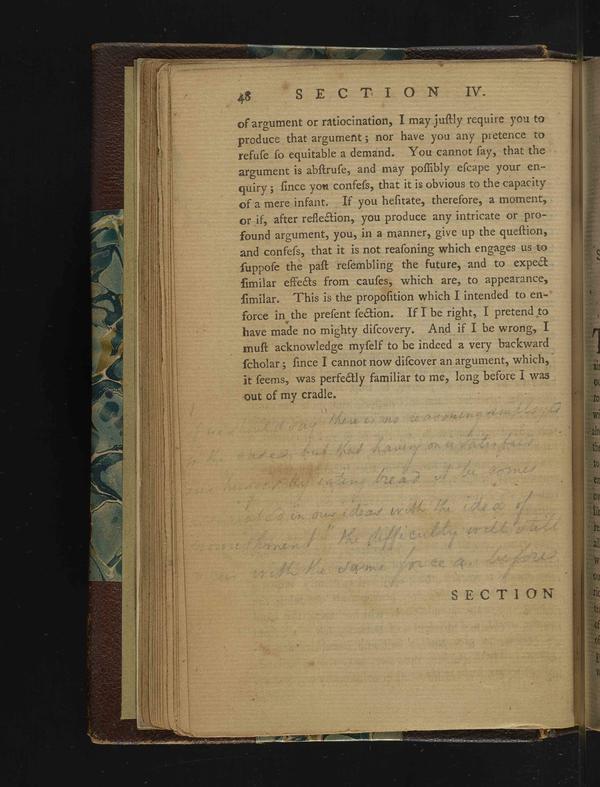 48 SECTION IV.
of argument or ratiocination, I may juſtly require you to
produce that argument; nor have you any pretence to
refuſe ſo equitable a demand. You cannot ſay, that the
argument is abſtruſe, and may poſſibly eſcape your en-
quiry; ſince you confeſs, that it is obvious to the capacity
of a mere infant. If you heſitate, therefore, a moment,
or if, after reflection, you produce any intricate or pro-
found argument, you, in a manner, give up the queſtion,
and confeſs, that it is not reaſoning which engages us to
ſuppoſe the paſt reſembling the future, and to expect
ſimilar effects from cauſes, which are, to appearance,
ſimilar. This is the propoſition which I intended to en-
force in the preſent ſection. If I be right, I pretend to
have made no mighty diſcovery. And if I be wrong, I
muſt acknowledge myſelf to be indeed a very backward
ſcholar; ſince I cannot now diſcover an argument, which,
it ſeems, was perfectly familiar to me, long before I was
out of my cradle.
say there is no reasoning
the case, but that having once satisfied
hunger by eating bread it be comes
in our ideas with the idea of
nourishment" the difficulty will still
with the same force as before
SECTION